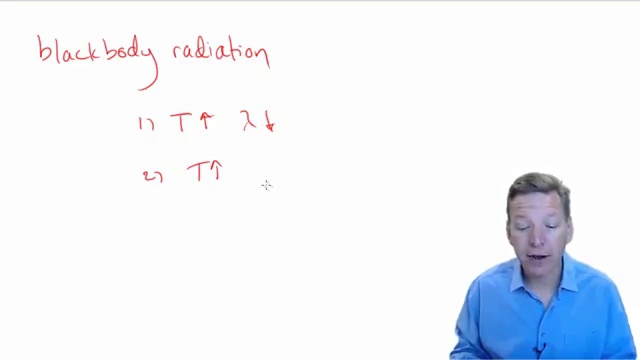 blackbody radiation
1) T↑ λ↓
2) T↑